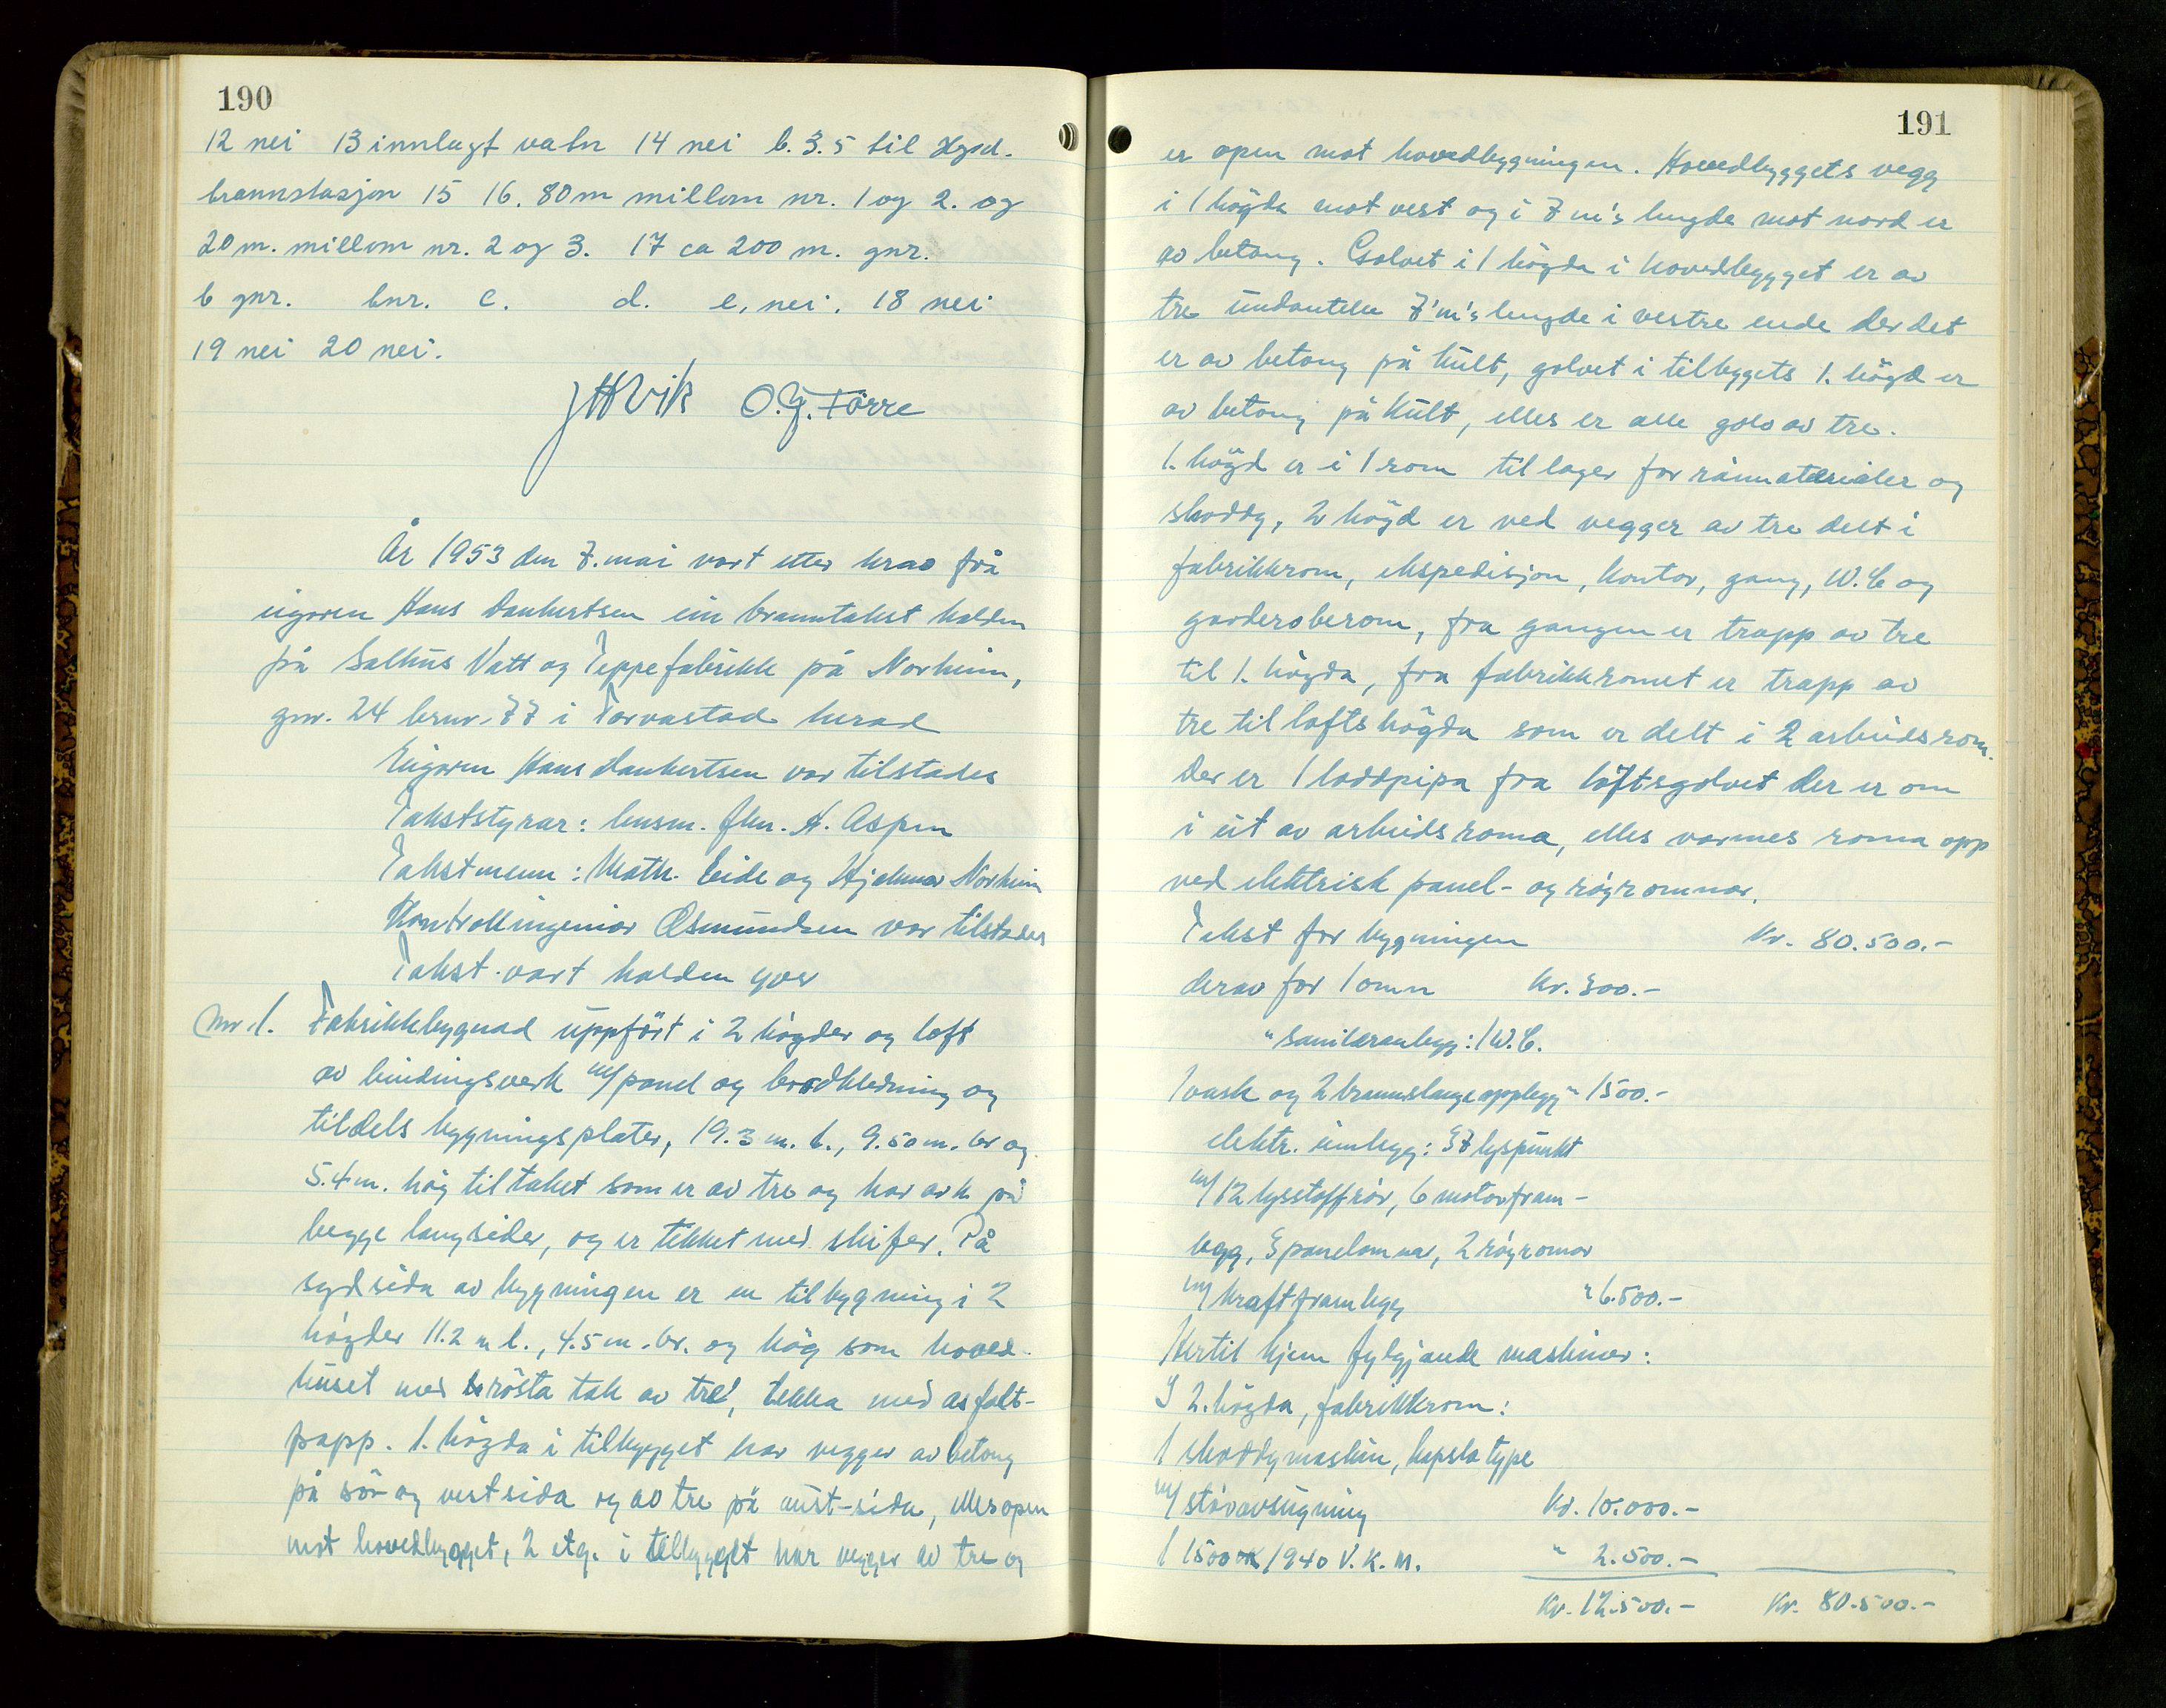 190
12 nei 13 innlagt vatn 14 nei b. 3.5 til Hgsd.
brannstasjon 15 16. 80 m millom nr. 1 og 2. og
20 m. millom nr. 2 og 3. 17 ca 200 m. gnr.
b gnr. bnr. c. d. e. nei. 18 nei
19 nei 20 nei.
O. G. Førre
År 1953 den 7. mai vart etter krav frå
eigaren Hans Daubertsen ein branntakst halden
på Salhus Vatt og Teppefabrikk på Norheim,
gnr. 24 brnr. 77 i Torvastad herad
Eigaren Hans Daubertsen var tilstades
Takststyrar: lensm. flm. A. Aspen
Takstmenn: Math. Eide og Hjalmar Norheim
Kontrollingeniør Osmundsen var tilstades
Takst vart halden yver
nr. 1. Fabrikkbygnad uppført i 2 høgder og loft
av bindingsverk m/panel og bordkledning og
tildels bygningsplater, 19.3 m. l., 9.50 m. br og
5.4 m. høg til taket som er av tre og har ark på
begge langsider, og er tekket med skifer. På
sydsida av bygningen er en tilbygning i 2
høgder 11.2 m l., 4.5 m. br. og høg som hoved-
huset med røsta tak av tre, tekka med asfalt-
papp. 1. høgda i tilbygget har vegger av betong
på sør og vestsida og av tre på aust-sida, elles open
mot hovedbygget, 2 etg. i tilbygget har vegger av tre og
191
er open mot hovedbygningen. Hovedbyggets vegg
i 1 høgda mot vest og i 7 m's lengde mot nord er
av betong. Golvet i 1 høgda i hovedbygget er av
tre undanteke 7 m's lengde i vestre ende der det
er av betong på kult, golvet i tilbygets 1. høgd er
av betong på kult, elles er alle golv av tre.
1. høgd er i 1 rom til lager for råmaterialer og
shoddy, 2 høgd er ved vegger av tre delt i
fabrikkrom, ekspedisjon, kontor, gang, W.C og
garderoberom, fra gangen er trapp av tre
til 1. høgda, fra fabrikkromet er trapp av
tre til loftshøgda som er delt i 2 arbeidsrom.
Der er 1 loddpipa fra loftsgolvet der er omn
i eit av arbeidsroma, elles varmes roma opp
ved elektrisk panel- og røyromnar.
Takst for bygningen Kr. 80.500.-
derav for 1 omn Kr. 300.-
" sanitæranlegg: 1 W.C.
1 vask og 2 brannslangeopplegg " 1500.-
elektr. innlegg: 37 lyspunkt
m/12 lysstoffrør, 6 motorfram-
legg, 3 panelomnar, 2 røyromnar
m/ kraftframlegg " 6.500.-
Hertil kjem fylgjande maskiner:
I 2. høgda, fabrikkrom:
1 shoddymaskin, kapsla type
m/ støvavsugning Kr. 10.000.-
1 1940 V.K.M. " 2.500.-
Kr. 12.500.- Kr. 80.500.-